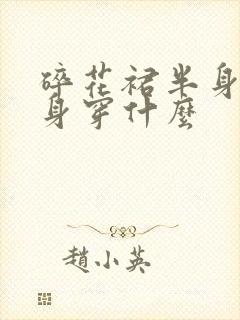 碎花裙半身
身穿什麼
趙小英